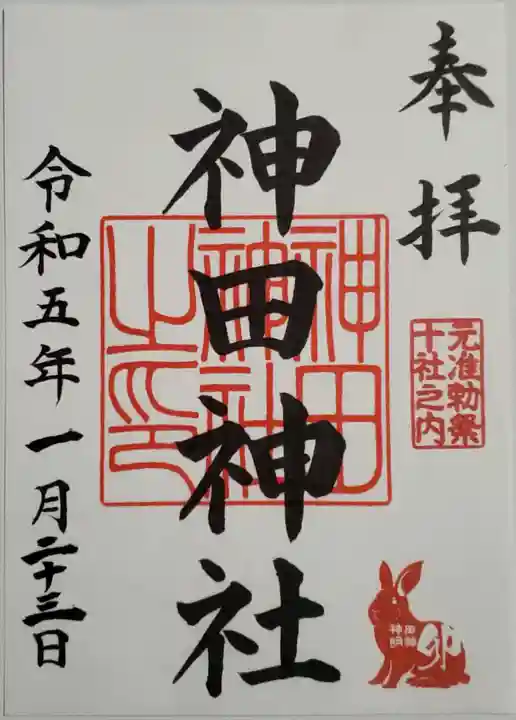 奉拝
元准勅祭
十社之内
卯
神田神社
神田
神社
之印
令和五年一月二十三日